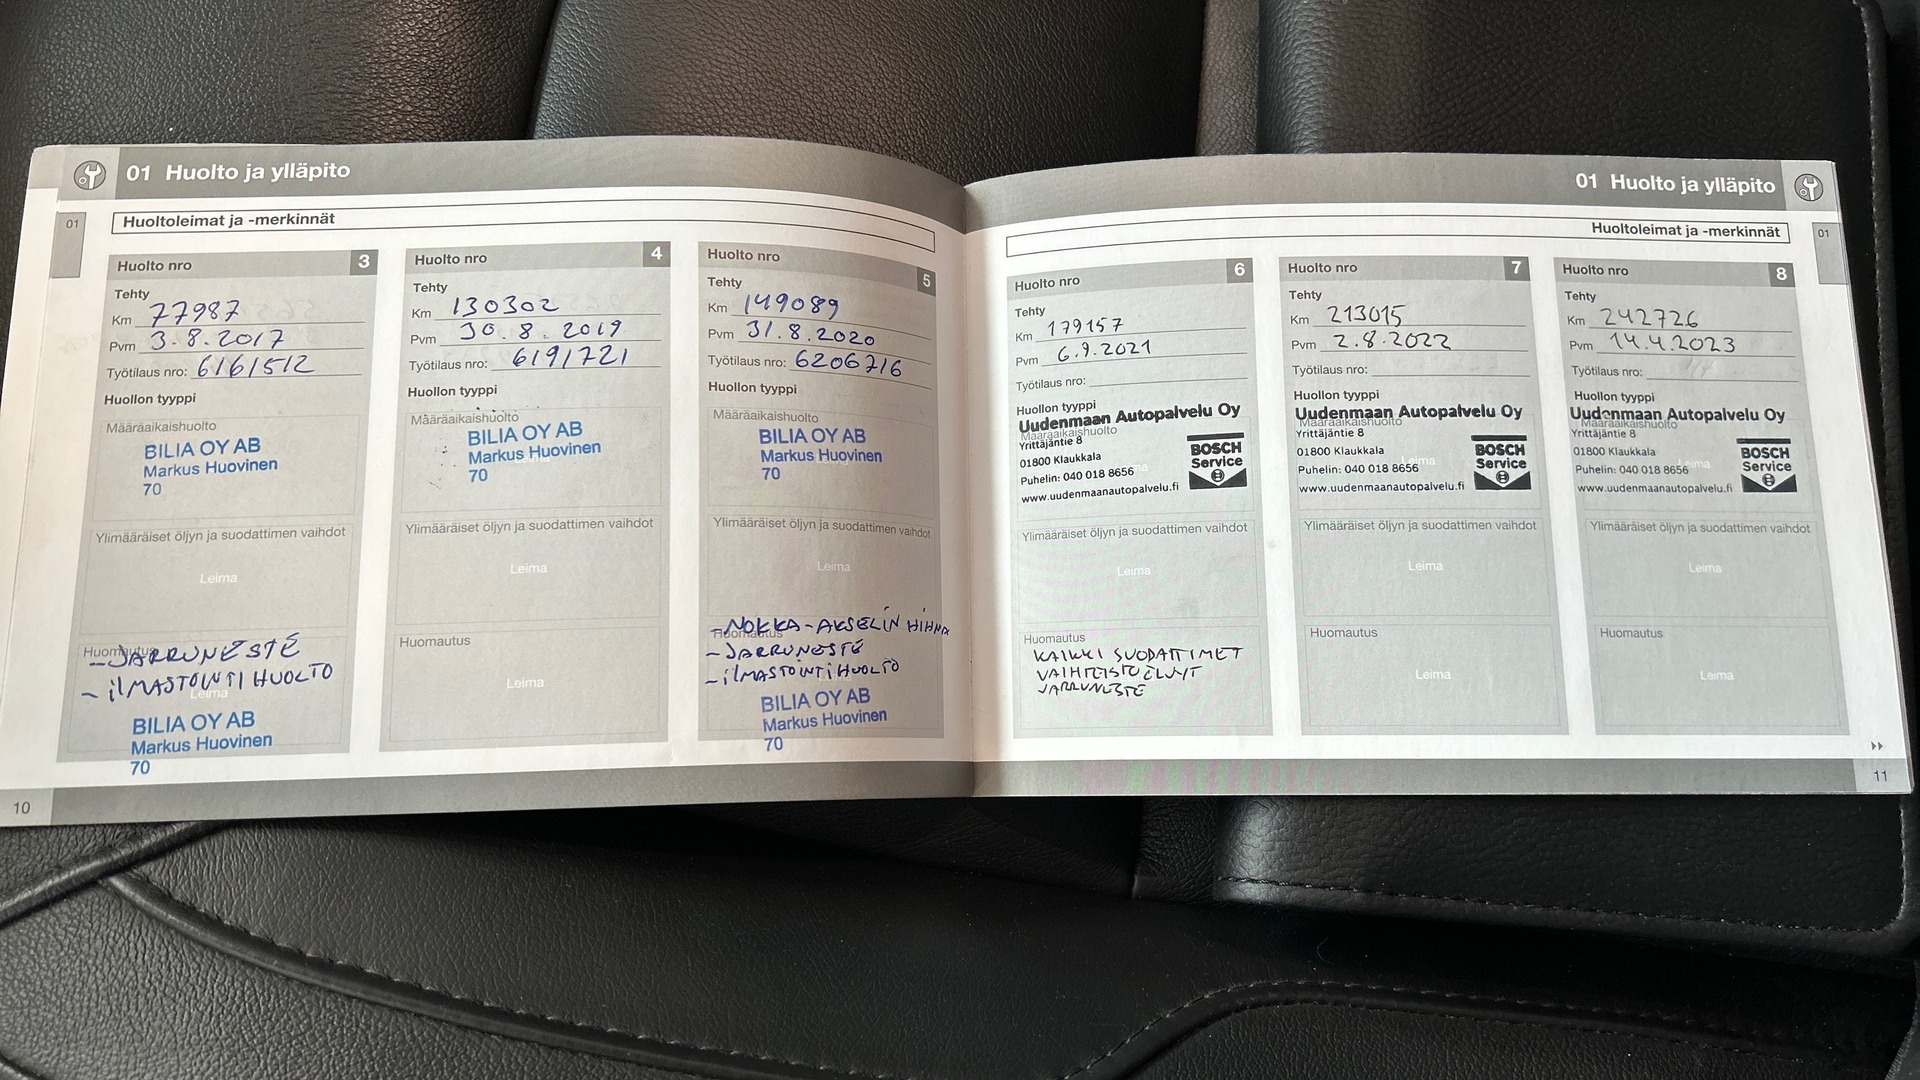 01 Huolto ja ylläpito
01
Huoltoleimat ja -merkinnät
Huolto nro 3
Tehty
Km 77987
Pvm 3.8.2017
Työtilaus nro: 6161512
Huollon tyyppi
Määräaikaishuolto
BILIA OY AB
Markus Huovinen
70
Ylimääräiset öljyn ja suodattimen vaihdot
Leima
Huomautus
-JARRUNESTE
- ILMASTOINTIHUOLTO
Leima
BILIA OY AB
Markus Huovinen
70
Huolto nro 4
Tehty
Km 130302
Pvm 30.8.2019
Työtilaus nro: 6191721
Huollon tyyppi
Määräaikaishuolto
BILIA OY AB
Markus Huovinen
70
Ylimääräiset öljyn ja suodattimen vaihdot
Leima
Huomautus
Leima
Huolto nro 5
Tehty
Km 149089
Pvm 31.8.2020
Työtilaus nro: 6206716
Huollon tyyppi
Määräaikaishuolto
BILIA OY AB
Markus Huovinen
70
Ylimääräiset öljyn ja suodattimen vaihdot
Leima
Huomautus
-NOKKA-AKSELIN HIHNA
-JARRUNESTE
-ILMASTOINTIHUOLTO
BILIA OY AB
Markus Huovinen
70
10
01 Huolto ja ylläpito
Huoltoleimat ja -merkinnät
01
Huolto nro 6
Tehty
Km 179157
Pvm 6.9.2021
Työtilaus nro:
Huollon tyyppi
Uudenmaan Autopalvelu Oy
Määräaikaishuolto
Yrittäjäntie 8
01800 Klaukkala
Puhelin: 040 018 8656
www.uudenmaanautopalvelu.fi
BOSCH
Service
Ylimääräiset öljyn ja suodattimen vaihdot
Leima
Huomautus
KAIKKI SUODATTIMET
VAIHTEISTOÖLJYT
JARRUNESTE
Huolto nro 7
Tehty
Km 213015
Pvm 2.8.2022
Työtilaus nro:
Huollon tyyppi
Uudenmaan Autopalvelu Oy
Määräaikaishuolto
Yrittäjäntie 8
01800 Klaukkala
Puhelin: 040 018 8656
Leima
www.uudenmaanautopalvelu.fi
BOSCH
Service
Ylimääräiset öljyn ja suodattimen vaihdot
Leima
Huomautus
Leima
Huolto nro 8
Tehty
Km 242726
Pvm 14.4.2023
Työtilaus nro:
Huollon tyyppi
Uudenmaan Autopalvelu Oy
Määräaikaishuolto
Yrittäjäntie 8
01800 Klaukkala
Puhelin: 040 018 8656
www.uudenmaanautopalvelu.fi
BOSCH
Service
Ylimääräiset öljyn ja suodattimen vaihdot
Leima
Huomautus
Leima
11